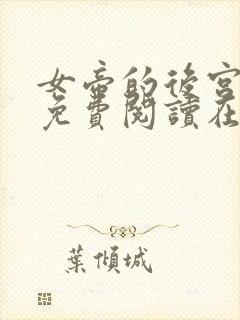 女帝的後宮
免費閱讀在
葉傾城